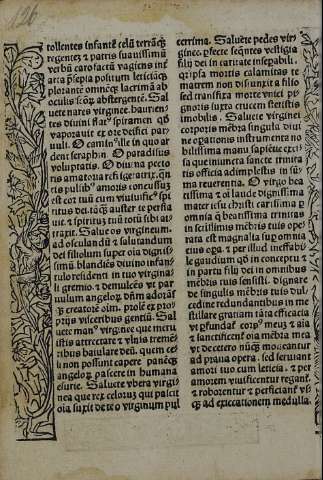 126
tollentes infantē celū terrāq̄
regentē et patris suauissimū
verbū carofactū vagiens int̄
arta p̄sepia positum leticiāq̨
plorantē omnēq̨ lacrimā ab
oculis scōꝝ abstergentē. Sal
uete nares virginee haurien
tes diuini flat⁹ spiramen qd
vaporauit ex ore deifici par
uuli. O camin⁹ ille in quo ar
dent seraphin. O paradisus
voluptatis. O diuina pecto
ris amatoria
tis pulsib⁹ amoris concussus
est cor tuū cum viuifice spi
ritus
uit et spiritum tuū totū sibi at
traxit. Salue os virgineum
ad osculandū et salutandum
dei filiolum super oīa dignis
simū blandiēs diuino infan
tulo residenti in tuo virgina
li gremio et demulcēs vt par
uulum angeloꝝ dn̄m adorās
vt creatorē oīm. prole ex pro
prijs visceribus genitū. Sal
uete man⁹ virginee que meru
istis attrectare et vlnis treme
tibus baiulare deū. quem ce
li non possunt capere panēq̨
angeloꝝ pascere in humana
esurie. Saluete vbera virgi
nea que rex celorum qui pascit
oīa suxit de te o virginum pul
cerrima. Saluete pedes vir
ginei. pfecte seqn̄tes vestigia
filij dei in caritate insepabili.
qr ipsa mortis calamitas te
matrem non disiunxit a filio
sed transfixa morte vnici pi
gnoris iuxta crucem stetistis
immobilis. Saluete virginei
corporis mēbra singula diui
ne opationis instrumenta no
bilissima manu sapiētie exci
sa que iniuncta sancte trinita
tis officia adimplestis in sū
ma reuerentia. O virgo bea
tissima et oī laude dignissima
mater iesu christi carissima p
omnia q̄ beatissima trinitas
in sctissimis mēbris tuis ope
rata est magnalia sup omnia
eius opa et per illud ineffabi
le gaudium qd in conceptu et
in partu filij dei in omnibus
mēbris tuis sensisti. dignare
de singulis mēbris tuis dul
cedine redundantibus in me
stillare gratiam tāta efficacia
vt pfundat̄ corp⁹ meuꝫ et aīa
et sanctificent̄ oīa mēbra mea
vt de cetero nūq̄ moueantur
ad praua opera. sed seruiant
amori tuo cum leticia. et per
amorem viuificentur regant̄
et roborentur et perficiant̄ vs
q̨ ad exiccationem medulla.